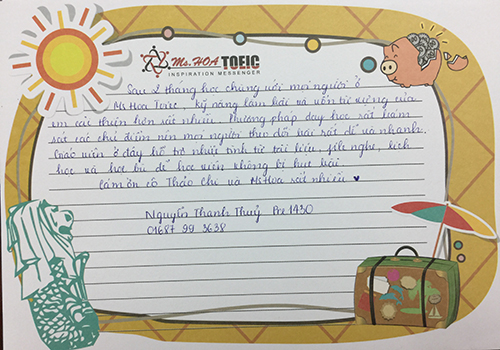 Ms.HOA TOEIC
INSPIRATION MESSENGER
Sau 2 tháng học chung với mọi người ở
Ms Hoa Toeic, kỹ năng làm bài và vốn từ vựng của
em cải thiện hơn rất nhiều. Phương pháp dạy học rất bám
sát các chủ điểm nên mọi người theo dõi bài rất dễ và nhanh.
Giáo viên ở đây hỗ trợ nhiệt tình từ tài liệu, file nghe, lịch
học và học bù để học viên không bị hụt bài
Cảm ơn cô Thảo Chi và Ms Hoa rất nhiều ♥
Nguyễn Thanh Thuỷ Pre 1430
01687 99 3638